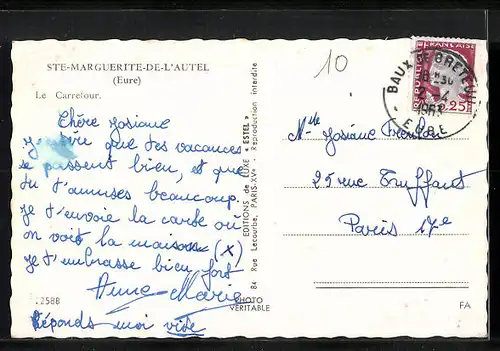 STE-MARGUERITE-DE-L'AUTEL
(Eure)
Le Carrefour.
Chère Josiane
J'espère que tes vacances
se passent bien, et que
tu t'amuses beaucoup.
Je t'envoie la carte où
on voit la maison (x)
Je t'embrasse bien fort
Anne-Marie
Réponds moi vite
.2588
EDITIONS de LUXE « ESTEL »
84 Rue Lecourbe, PARIS-XV° - Reproduction interdite
PHOTO
VERITABLE
10
REPUBLIQUE FRANÇAISE
0,25
BAUX DE BRETEUIL
EURE
Mlle Josiane
25 rue Truffaut
Paris 17e
FA